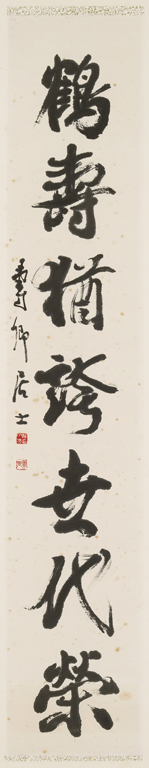 鶴壽猶誇世代榮
夢卿居士